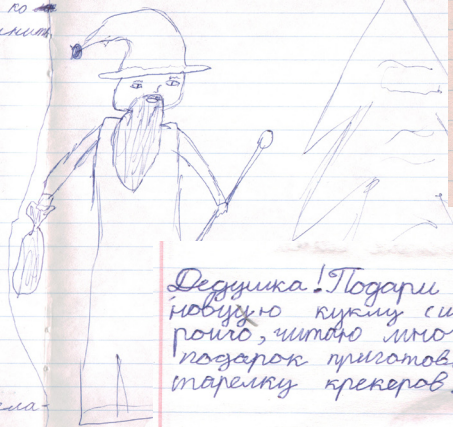 ко
Дедушка! Подари
новую куклу
рошо, читаю мно
подарок приготов
тарелку крекеров.
ела-